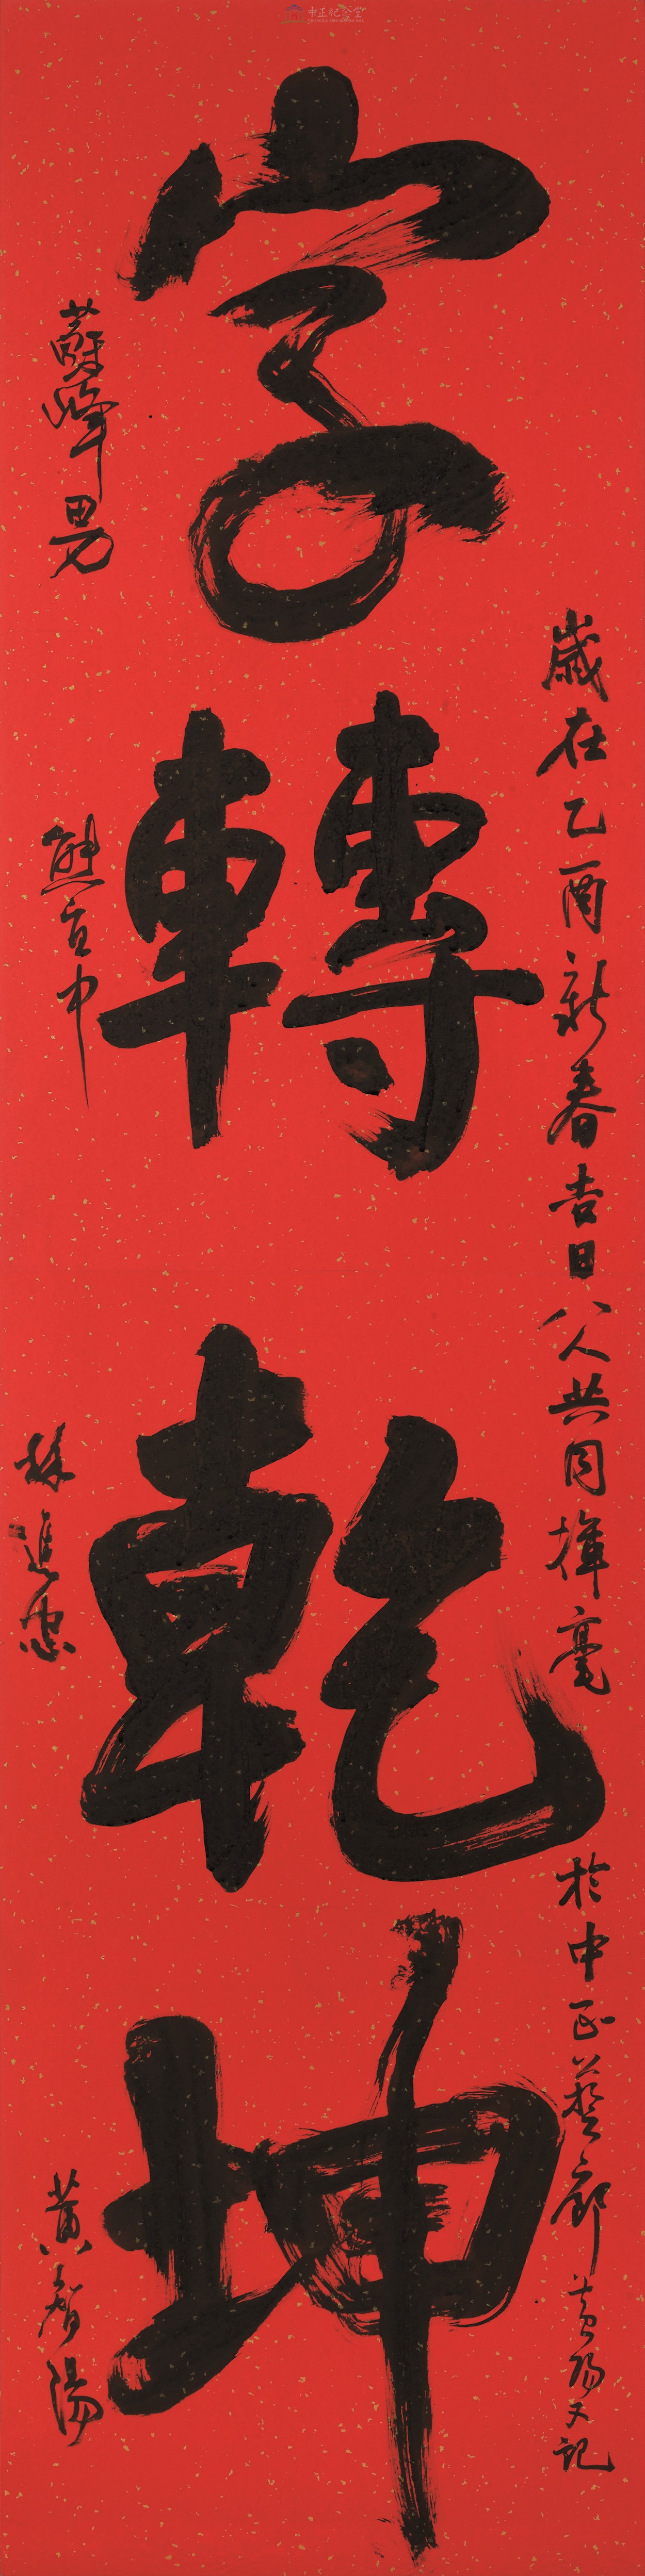 中正紀念堂
字轉乾坤
歲在乙酉新春吉日八人共同揮毫
於中正藝廊黃智陽又記
蘇峯男
熊宜中
林進忠
黃智陽